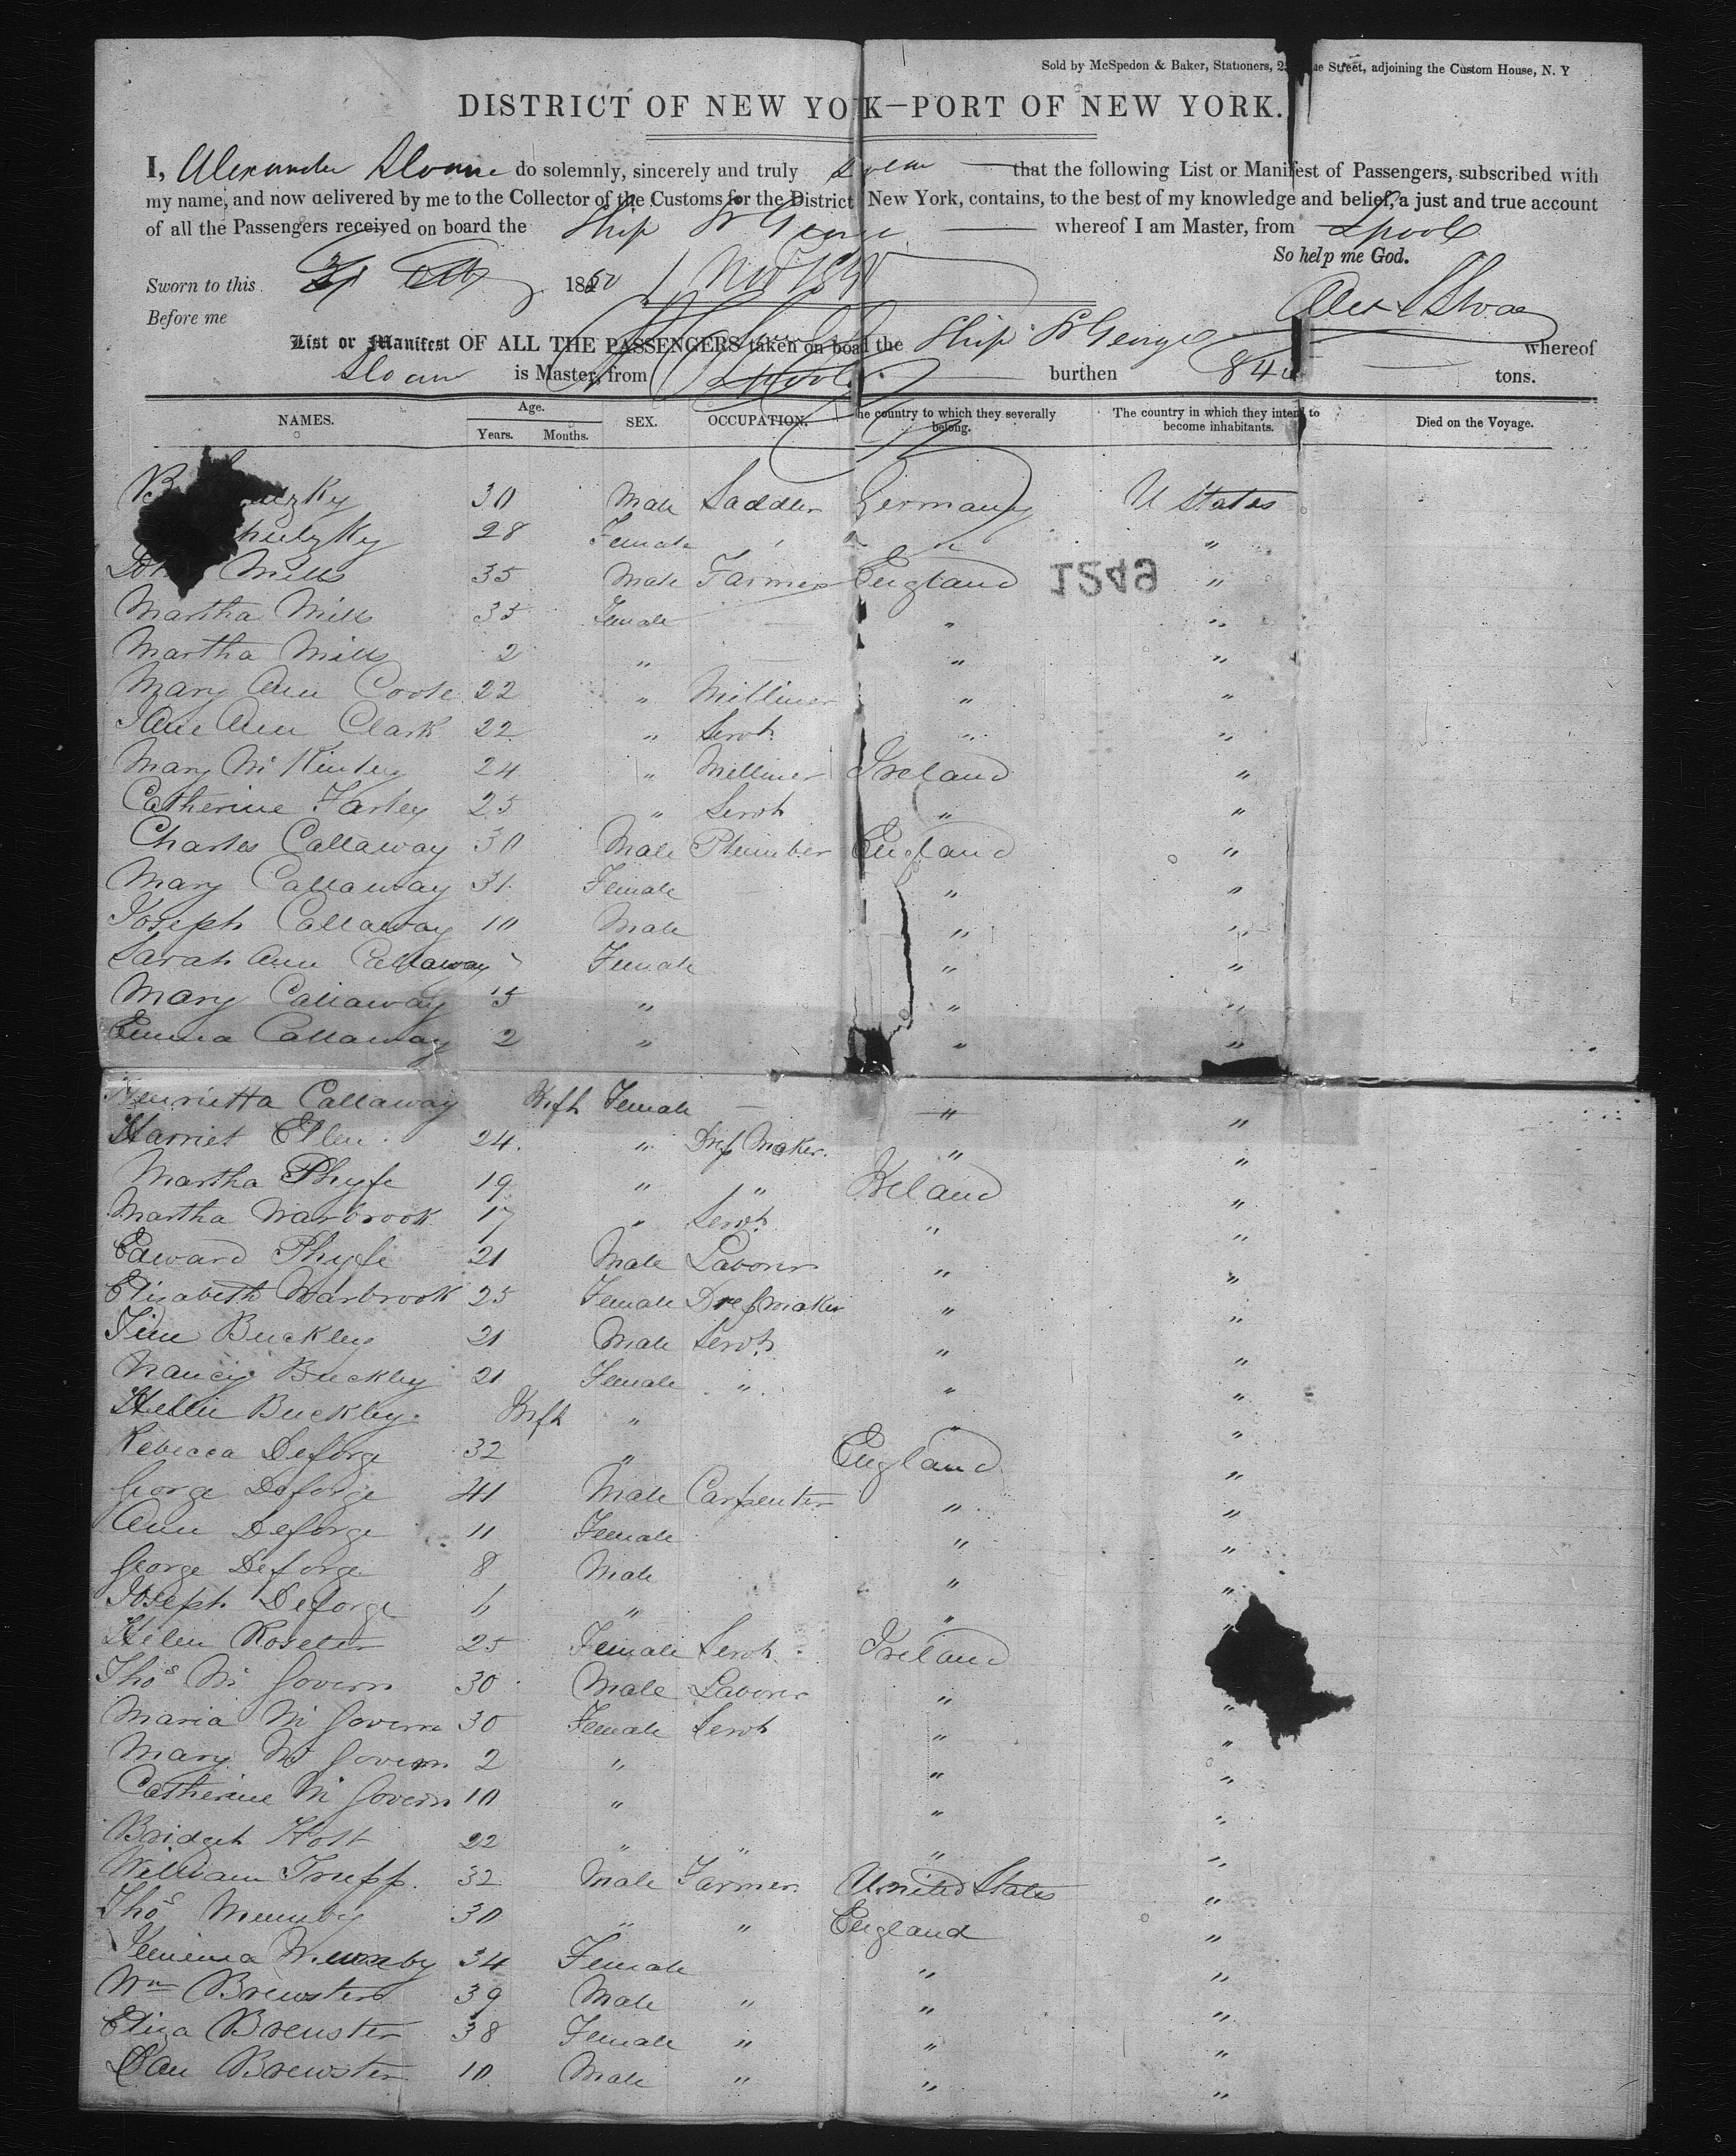 Sold by McSpedon & Baker, Stationers, Street, adjoining the Custom House, N. Y
DISTRICT OF NEW YO K—PORT OF NEW YORK.
I, Alexander Sloane do solemnly, sincerely and truly that the following List or Manifest of Passengers, subscribed with
my name, and now delivered by me to the Collector of the Customs for the District New York, contains, to the best of my knowledge and belief, a just and true account
of all the Passengers received on board the Ship St George whereof I am Master, from Lpool
So help me God.
Sworn to this 18
Before me
List or Manifest OF ALL THE PASSENGERS taken on boa d the Ship St George whereof
Sloane is Master, from Lpool burthen tons.
NAMES. Age. Years. Months. SEX. OCCUPATION. he country to which they severally belong. The country in which they intend to become inhabitants. Died on the Voyage.
30 Male Saddler Germany U States
28 Female "
Mills 35 Male Farmer England "
1249
Martha Mills 35 Female — " "
Martha Mills 2 " — " "
Mary Ann Coole 22 " Milliner " "
Jane Ann Clark 22 " Servt " "
Mary McKinley 24 " Milliner Ireland "
Catherine Farley 25 " Servt " "
Charles Callaway 30 Male Plumber England "
Mary Callaway 31 Female " "
Joseph Callaway 10 Male " "
Sarah Ann Callaway Female " "
Mary Callaway 5 " " "
Emma Callaway 2 " " "
Henrietta Callaway Inft Female — " "
Harriet Ellen 24 " Dress Maker " "
Martha Phyfe 19 " " Ireland "
Martha Warbrook 17 " Servt " "
Edward Phyfe 21 Male Laborer " "
Elizabeth Warbrook 25 Female Dressmaker " "
Tim Buckley 21 Male Servt " "
Nancy Buckley 21 Female " " "
Hellen Buckley Inft " " "
Rebecca Deforge 32 " England "
George Deforge 41 Male Carpenter " "
Ann Deforge 11 Female " "
George Deforge 8 Male " "
Joseph Deforge 6 " " "
Helen Roseter 25 Female Servt Ireland
Thos McGovern 30 Male Laborer " "
Maria McGovern 30 Female Servt " "
Mary McGovern 2 " " "
Catherine McGovern 10 " " "
Bridget Holt 22 " " " "
William Trupp 32 Male Farmer United States "
Thos Mumby 30 " " England "
Jemima Mumby 34 Female " "
Wm Brewster 39 Male " " "
Eliza Brewster 38 Female " " "
Dan Brewster 10 Male " " "